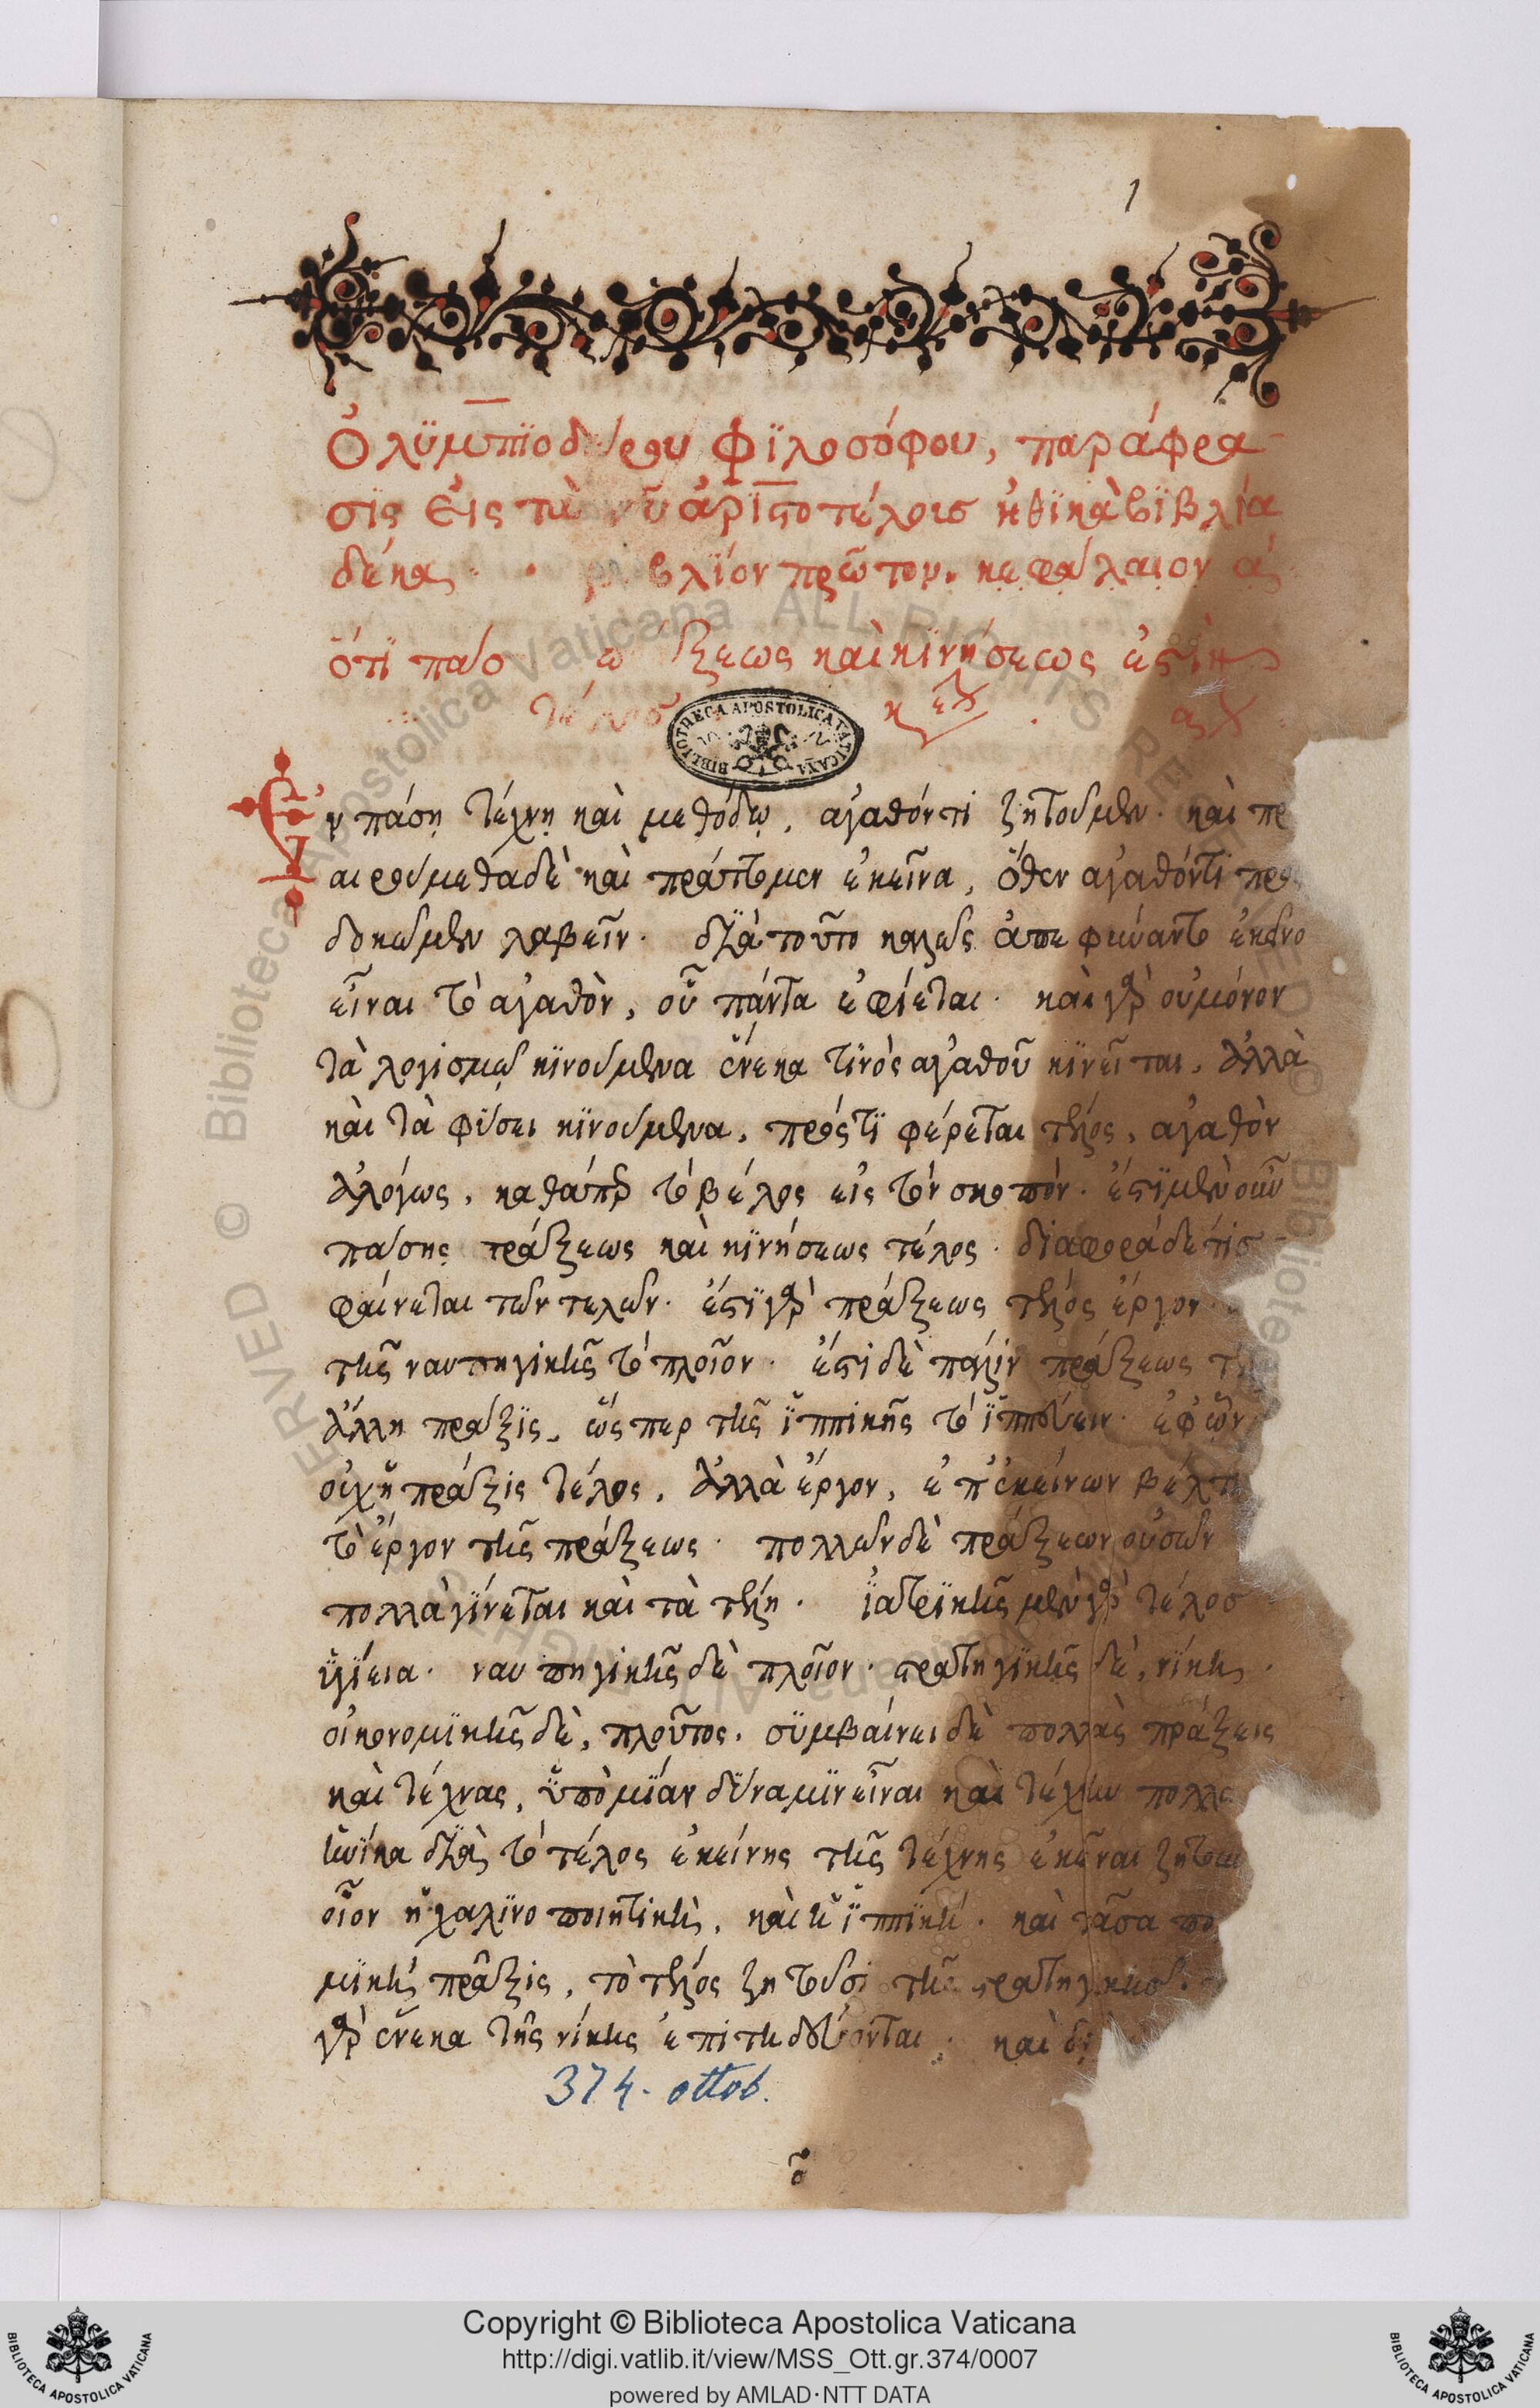 1
Ὀλϋμπϊοδώρου Φϊλοσόφου, παράφρα-
σϊς εἰς τὰ τοῦ ἀρϊστοτέλους ἠθϊκὰ βϊβλία
δέκα. βιβλϊόν πρῶτον. κεφάλαιον α
ὅτϊ πάσ ξεως καὶ κϊνήσεως ἐστὶ
τέλος
BIBLIOTHECA APOSTOLICA VATICANA
Ἐν πάσῃ τέχνῃ καὶ μεθόδῳ, ἀγαθόν τι ζητοῦμεν. καὶ πρ
αιρούμεθα δὲ καὶ πράττομεν ἐκεῖνα, ὅθεν ἀγαθόν τι προσ
δοκῶμεν λαβεῖν. διὰ τοῦτο καλῶς ἀπεφήναντο ἐκεῖνο
εἶναι τὸ ἀγαθὸν, οὗ πάντα ἐφίεται. καὶ γὰρ οὐ μόνον
τὰ λογισμῷ κϊνούμενα ἕνεκα τϊνὸς ἀγαθοῦ κϊνεῖται, ἀλλὰ
καὶ τὰ φύσει κϊνούμενα, πρός τϊ φέρεται τέλος, ἀγαθὸν
ἀλόγως, καθάπερ τὸ βέλος εἰς τὸν σκοπόν. ἔστϊ μὲν οὖν
πάσης πράξεως καὶ κϊνήσεως τέλος. διαφορὰ δέ τις
φαίνεται τῶν τελῶν. ἔστϊ γὰρ πράξεως τέλος ἔργον.
τῆς ναυπηγικῆς τὸ πλοῖον. ἔστι δὲ πάλιν πράξεως τέ
ἄλλη πρᾶξϊς, ὥσπερ τῆς ἵππικῆς τὸ ἱππεύειν. ἐφ ὧν
οὐχ ἡ πρᾶξις τέλος, ἀλλὰ ἔργον, ἐπ ἐκείνων βέλτι
τὸ ἔργον τῆς πράξεως. πολλῶν δὲ πράξεων οὐσῶν
πολλὰ γϊνεται καὶ τὰ τέλη. ϊατρϊκῆς μὲν γὰρ τέλος
ὑγίεια. ναυπηγικῆς δὲ πλοῖον. στρατηγϊκῆς δὲ, νϊκη.
οἰκονομϊκῆς δὲ, πλοῦτος. συμβαίνει δὲ πολλὰς πράξεις
καὶ τέχνας, ὑπὸ μϊαν δύναμϊν εἶναι καὶ τέχνην πολλὰ
ἡνίκα διὰ τὸ τέλος ἐκείνης τῆς τέχνης ἐκεῖναι ζητου
οἷον ἡ χαλϊνοποιητϊκὴ, καὶ ἡ ἱππϊκή. καὶ πᾶσα πο
μϊκὴ πρᾶξις, τὸ τέλος ζητοῦσι τῆς στρατηγικῆς.
γὰρ ἕνεκα τῆς νίκης ἐπιτηδεύονται. καὶ δι
374. ottob.
Copyright © Biblioteca Apostolica Vaticana
http://digi.vatlib.it/view/MSS_Ott.gr.374/0007
powered by AMLAD·NTT DATA
BIBLIOTECA APOSTOLICA VATICANA
BIBLIOTECA APOSTOLICA VATICANA